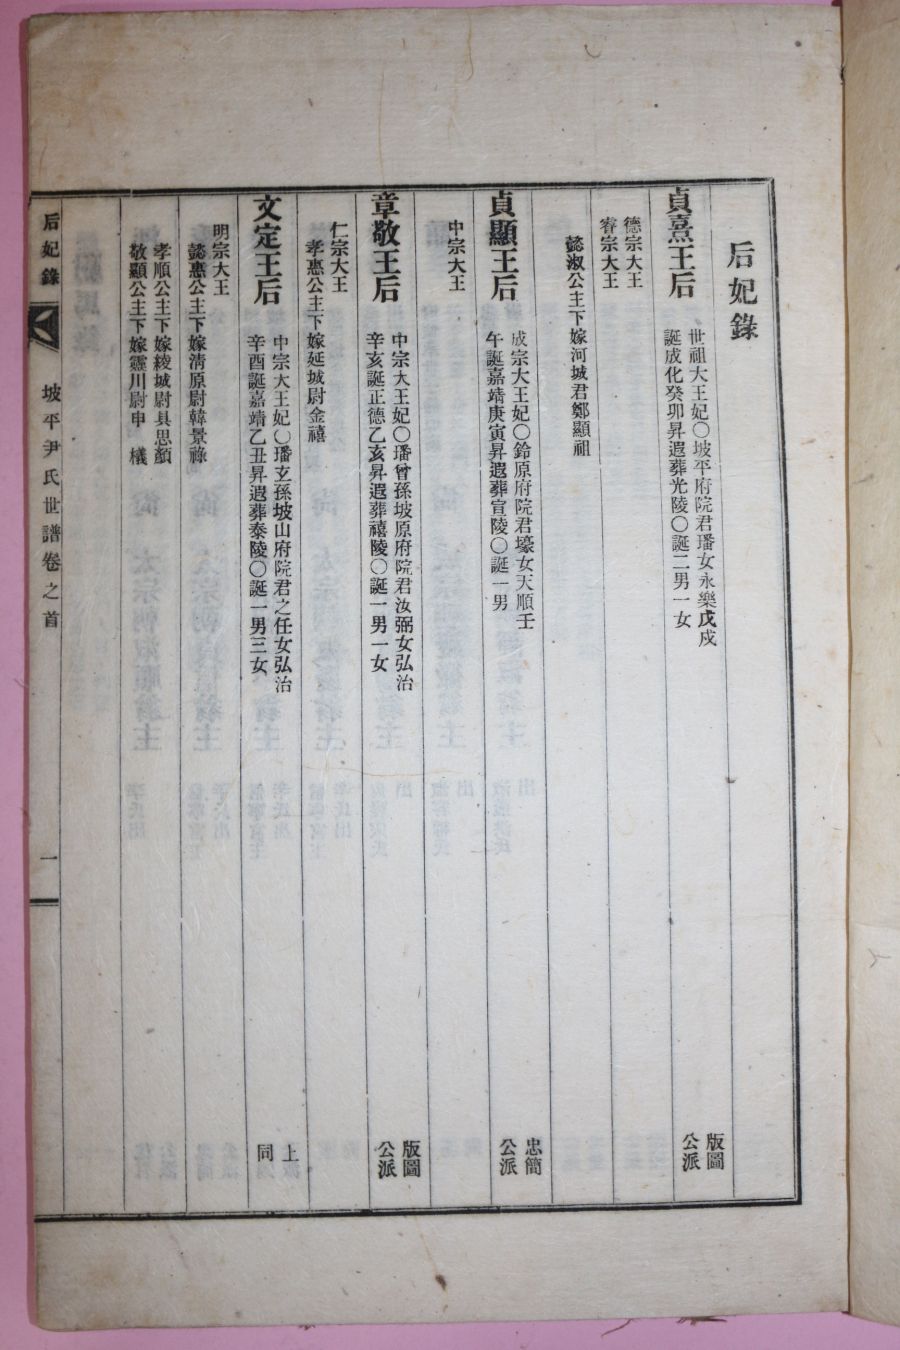 后妃錄
貞熹王后
世祖大王妃〇坡平府院君璠女永樂戊戌
誕成化癸卯昇遐葬光陵〇誕二男一女
版圖
公派
德宗大王
睿宗大王
懿淑公主下嫁河城君鄭顯祖
貞顯王后
成宗大王妃〇鈴原府院君壕女天順壬
午誕嘉靖庚寅昇遐葬宣陵〇誕一男
忠簡
公派
中宗大王
章敬王后
中宗大王妃〇璠曾孫坡原府院君汝弼女弘治
辛亥誕正德乙亥昇遐葬禧陵〇誕一男一女
版圖
公派
仁宗大王
孝惠公主下嫁延城尉金禧
文定王后
中宗大王妃〇璠玄孫坡山府院君之任女弘治
辛酉誕嘉靖乙丑昇遐葬泰陵〇誕一男三女
上
同
明宗大王
懿惠公主下嫁淸原尉韓景祿
孝順公主下嫁綾城尉具思顏
敬顯公主下嫁靈川尉申檥
后妃錄
坡平尹氏世譜卷之首
一